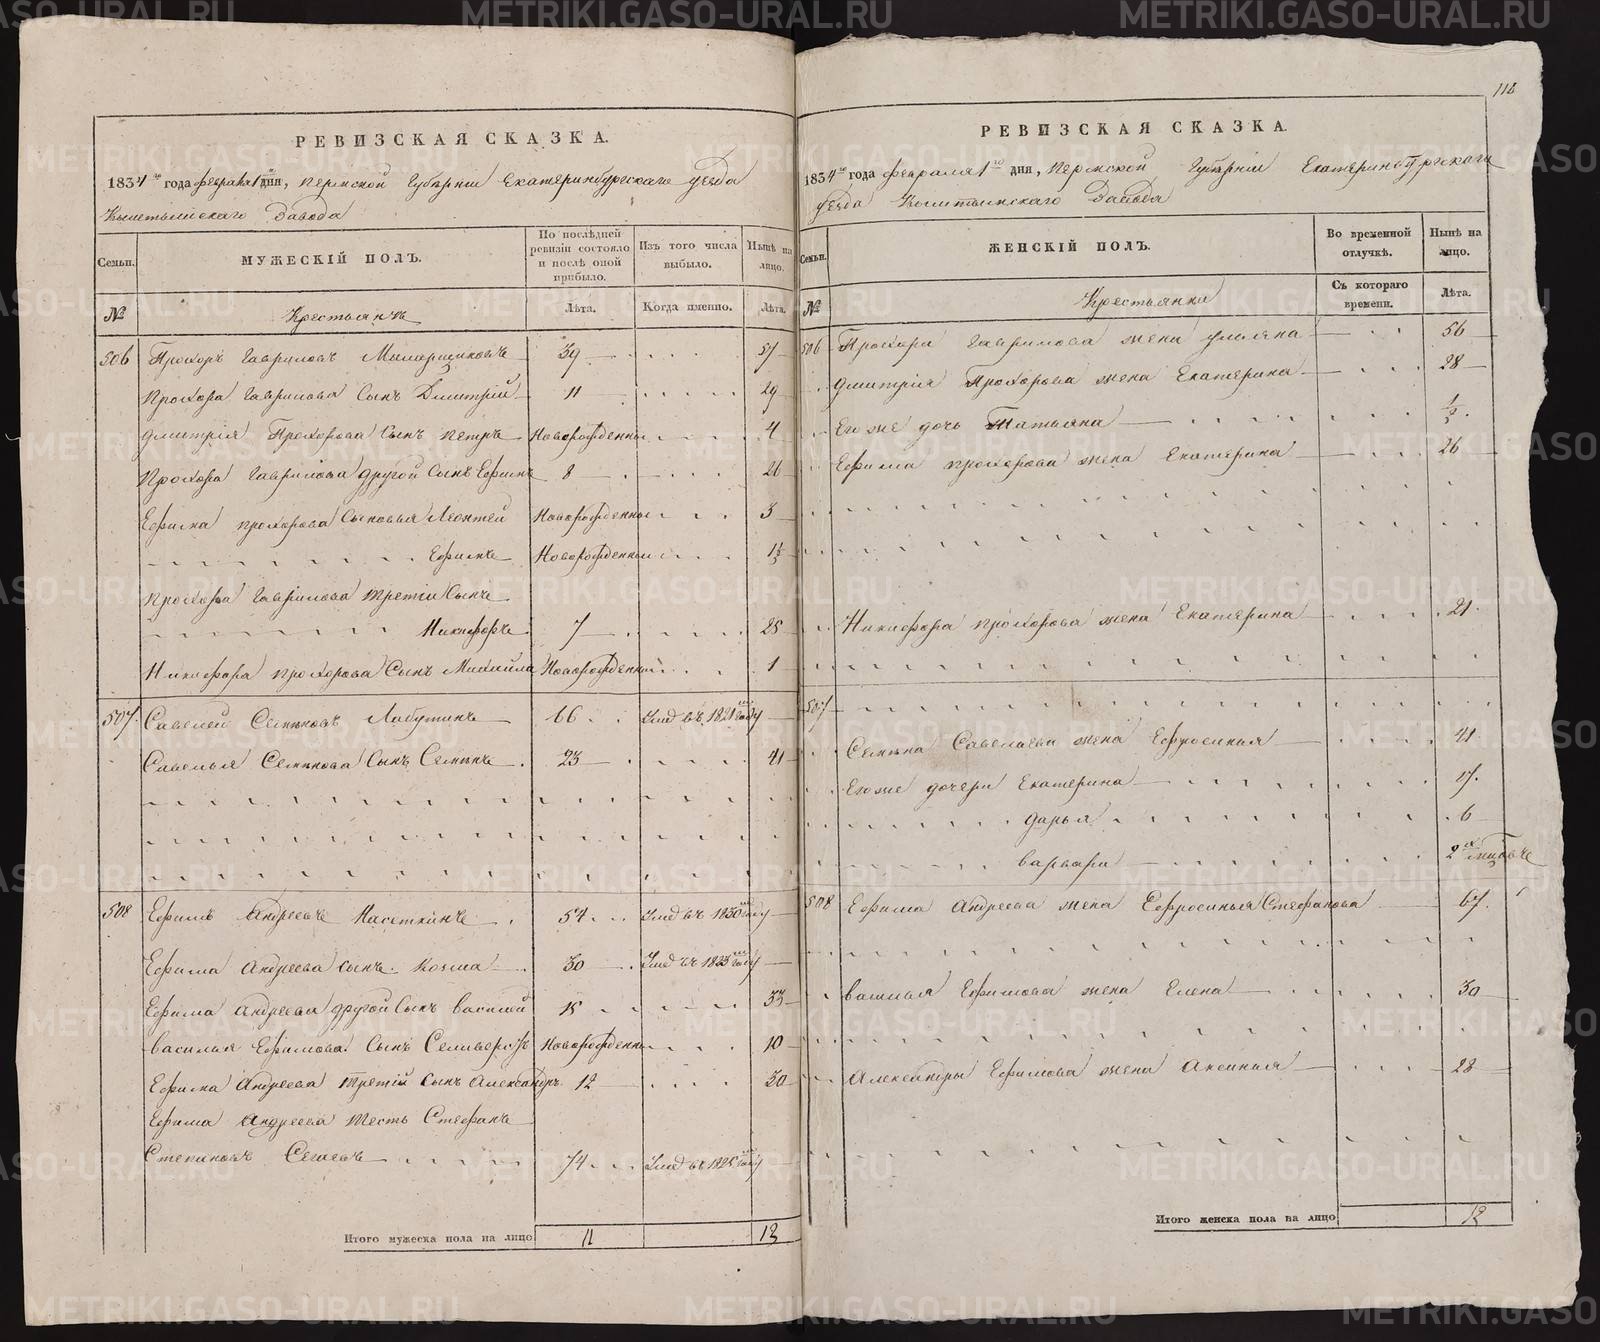 РЕВИЗСКАЯ СКАЗКА.
1834го года февраля 1го дни, Пермской Губерніи Екатеринбургскаго уезда
Кыштымскаго Завода
Семьи.
МУЖЕСКІЙ ПОЛЪ.
По послѣдней ревизіи состояло и послѣ оной прибыло.
Изъ того числа выбыло.
Нынѣ на лицо.
№
Крестьянъ
Лѣта.
Когда именно.
Лѣта.
506 Прохоръ Гавриловъ 39 57
Прохора Гаврилова Сынъ Дмитрій 11 29
Дмитрія Прохорова Сынъ Петръ Новорожденны 4
Прохора Гаврилова другой Сынъ Ефимъ 8 26
Ефима Прохорова Сыновья Леонтей Новорожденны 3
Ефимъ Новорожденны
Прохора Гаврилова третій Сынъ
Никифоръ 7 25
Никифора Прохорова Сынъ Михайла Новорожденный 1
507 Савелей Семеновъ Лабутинъ 66 Умре въ 1821мъ году
Савелья Семенова Сынъ Семенъ 23 41
508 Ефимъ Андреевъ Насеткинъ 57 Умре въ 1830мъ году
Ефима Андреева сынъ Козма 30 Умре въ 1823мъ году
Ефима Андреева другой Сынъ Василей 15 33
Василья Ефимова Сынъ Селиверстъ Новорожденны 10
Ефима Андреева третій сынъ Александръ 12 30
Ефима Андреева тесть Стефанъ
74 Умре въ 1825мъ году
Итого мужеска пола на лицо 11 13
112
РЕВИЗСКАЯ СКАЗКА.
1834го года февраля 1го дни, Пермской Губерніи Екатеринбургскаго
уезда Кыштымскаго Завода
Семьи.
ЖЕНСКІЙ ПОЛЪ.
Во временной отлучкѣ.
Нынѣ на лицо.
№
Крестьянки
Съ котораго времени.
Лѣта.
506 Прохора Гаврилова жена Ульяна 56
Дмитрія Прохорова жена Екатерина 28
Его же дочь Татьяна 1/2
Ефима Прохорова жена Екатерина 26
Никифора Прохорова жена Екатерина 21
507
Семена Савельева жена Ефросинья 41
Его же дочери Екатерина 17
Дарья 6
Варвара 2хъ
508 Ефима Андреева жена Ефросинья Стефанова 67
Василья Ефимова жена Елена 30
Александры Ефимова жена Аксинья 28
Итого женска пола на лицо 12
METRIKI.GASO-URAL.RU